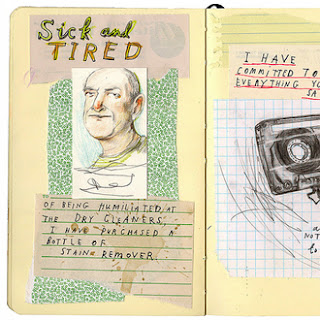 Sick and
TIRED
OF BEING HUMILIATED AT
THE DRY CLEANERS,
I HAVE PURCHASED A
BOTTLE OF
STAIN REMOVER.
I HAVE
COMMITTED TO
EVERYTHING YO
SA
a
NOT
lo